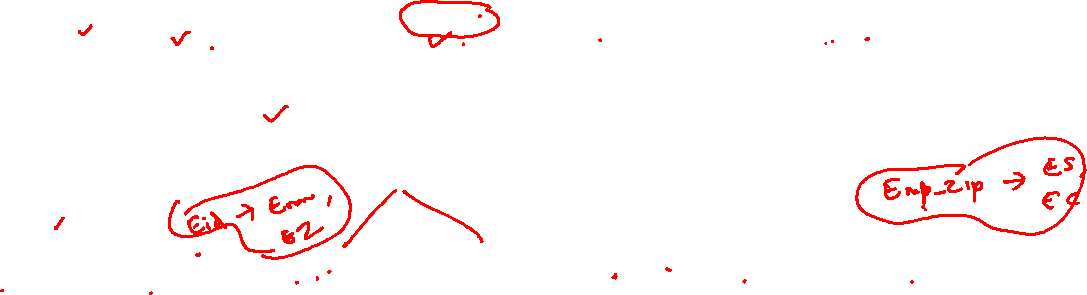 Eid → Enm,
EZ
Emp_Zip → ES
EC